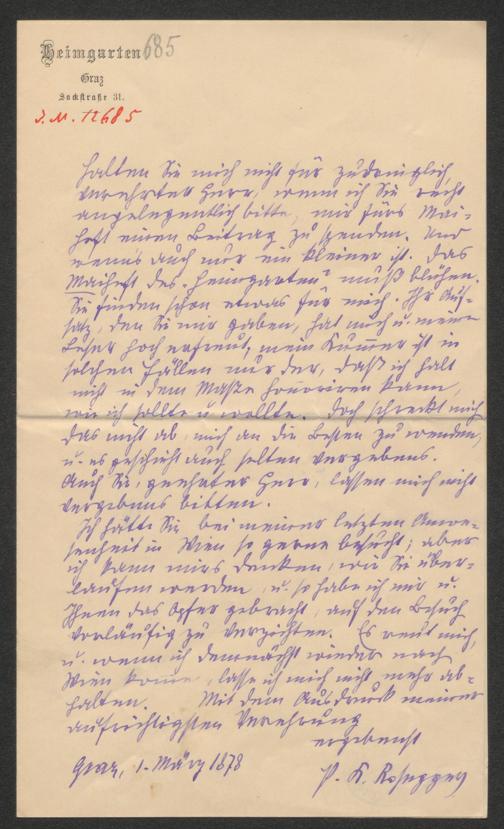 Heimgarten 685
Graz
Sackstraße 31.
I.N. 12685
Halten Sie mich nicht für zudringlich,
verehrter Herr, wenn ich Sie recht
angelegentlich bitte, mir fürs Mai-
heft einen Beitrag zu spenden. Und
wenns auch nur ein kleiner ist. Das
Maiheft des „Heimgarten“ muß blühen.
Sie finden schon etwas für mich. Ihr Auf-
satz, den Sie mir gaben, hat mich u. meine
Leser hoch erfreut, mein Kummer ist in
solchen Fällen nur der, daß ich halt
nicht in dem Maße honoriren kann,
wie ich sollte u. wollte. Doch schreckt mich
das nicht ab, mich an die Besten zu wenden,
u. es geschieht auch selten vergebens.
Auch Sie, geehrter Herr, lassen mich nicht
vergebens bitten.
Ich hätte Sie bei meiner letzten Anwe-
senheit in Wien so gerne besucht; aber
ich kann mirs denken, wie Sie über-
laufen werden, u. so habe ich mir u.
Ihnen das Opfer gebracht, auf den Besuch
vorläufig zu verzichten. Es reut mich,
u. wenn ich demnächst wieder nach
Wien komme, lasse ich mich nicht mehr ab-
halten. Mit dem Ausdruck meiner
aufrichtigsten Verehrung
ergebenst
Graz, 1. März 1878
P. K. Rosegger